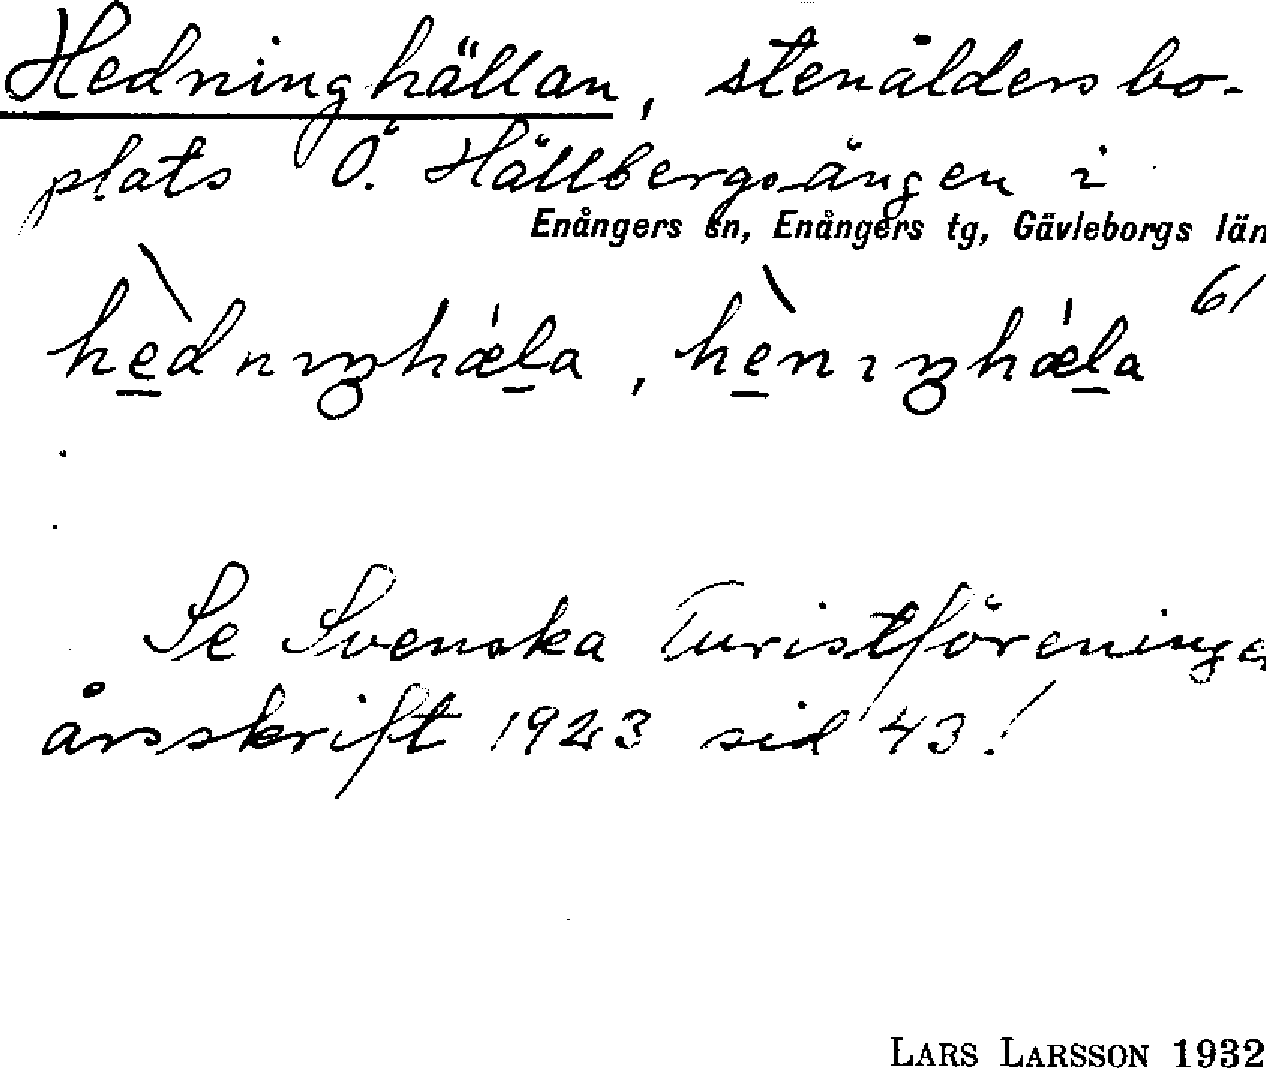 Hedninghällan, stenåldersbo-
plats Ö. Hällbergsängen i
Enångers sn, Enångers tg, Gävleborgs län
61
hèdnıŋhǽla, hènıŋhǽla
Se Svenska Turistförening
årsskrift 1923 sid 43!
LARS LARSSON 1932